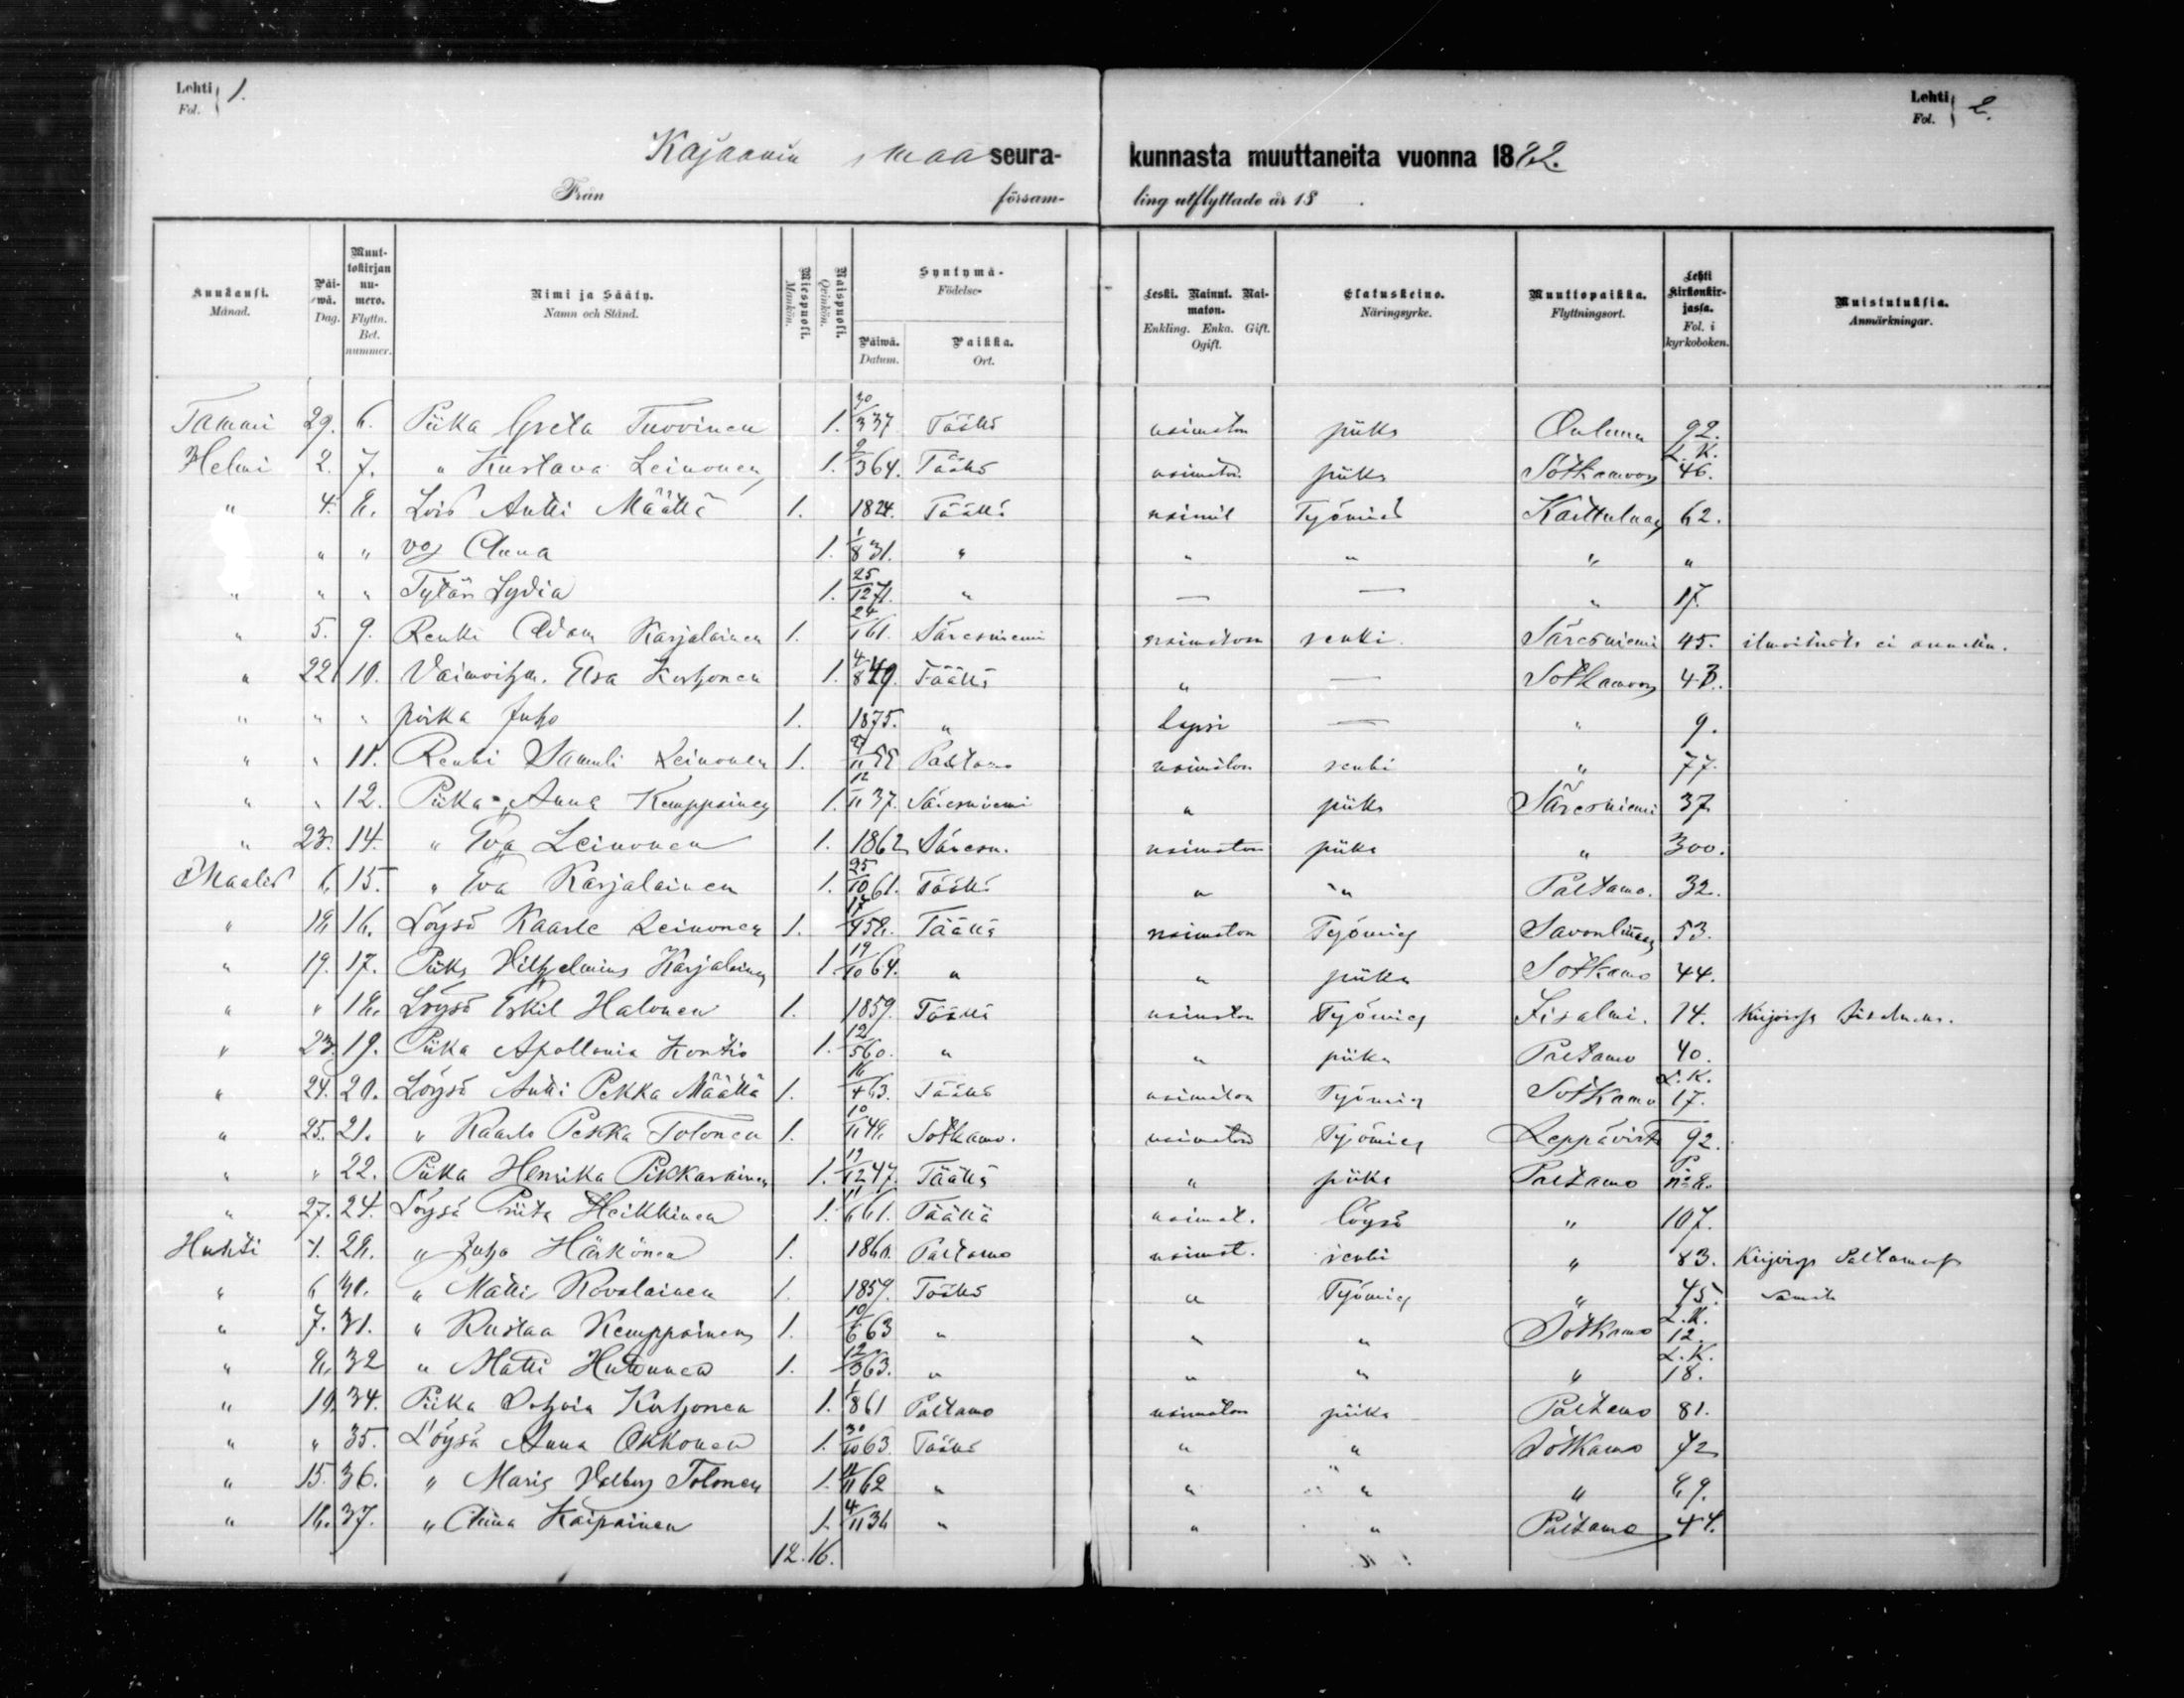 Lehti 1.
Fol.
Lehti 2.
Fol.
Kajaanin maaseura- kunnasta muuttaneita vuonna 1882.
Från försam- ling utflyttade år 18
Kuukausi. Månad.
Päi-wä. Dag.
Muut-tokirjan nu-mero. Flyttn. Bet. nummer.
Nimi ja Sääty. Namn och Stånd.
Miespuoli. Mankön.
Naispuoli. Qvinkön.
Syntymä- Födelse-
Päiwä. Datum.
Paikka. Ort.
Leski. Nainut. Nai-maton. Enkling. Enka. Gift. Ogift.
Elatuskeino. Näringsyrke.
Muuttopaikka. Flyttningsort.
Lehti kirkonkir-jasta. Fol. i kyrkoboken.
Muistutuksia. Anmärkningar.
Tammi 29. 6. Piika Greta Tuovinen 1. 30/3 37 Täältä naimaton piika Ouluun 92.
Helmi 2. 7. " Kustava Leinonen 1. 9/3 64. Täältä naimaton piika Sotkamoon L.K. 46.
" 4. 8. Lois Antti Määttä 1. 1824. Täältä nainut Työmies Karttulaan 62.
" " " vo Anna 1. 1/8 31. " " " " "
" " " Tytär Lydia 1. 25/12 71. " — — " 17.
" 5. 9. Renki Adam Karjalainen 1. 24/1 61. Säresniemi naimaton renki Säresniemi 45. ilmoitusta ei annettu.
" 22. 10. Vaimoihm. Elsa Korhonen 1. 4/8 49. Täältä " — Sotkamoon 43.
" " " poika Juho 1. 1875. " lapsi — " 9.
" " 11. Renki Samuli Leinonen 1. 27/11 55 Paltamo naimaton renki " 77.
" " 12. Piika Anna Kemppainen 1. 12/11 37. Säresniemi " piika Säresniemi 37
" 23. 14. " Eva Leinonen 1. 1862 Säresn. naimaton piika " 300.
Maalis 6. 15. " Eva Karjalainen 1. 25/10 61. Täältä " " Paltamo. 32.
" 18. 16. Löysä Kaarle Leinonen 1. 17/4 58. Täältä naimaton Työmies Savonlinnaan 53.
" 19. 17. Piika Vilhelmina Karjalainen 1. 19/10 64. " " piika Sotkamo 44.
" " 18. Löysä Eskil Halonen 1. 1859. Täältä naimaton Työmies Iisalmi. 14.
" 23. 19. Piika Apollonia Kontio 1. 12/5 60. " " piika Paltamo 40.
" 24. 20. Löysä Antti Pekka Määttä 1. 16/4 63. Täältä naimaton Työmies Sotkamo L.K. 17.
" 25. 21. " Kaarlo Pekka Tolonen 1. 10/11 48. Sotkamo. naimaton Työmies Leppävirta 92.
" " 22. Piika Henrika Pikkarainen 1. 19/12 47. Täältä " piika Paltamo
" 27. 24. Löysä Priita Heikkinen 1. 11/6 61. Täältä naimat. löysä " 107.
Huhti 1. 28. " Juho Härkönen 1. 1860. Paltamo naimat. renki " 83.
" 6 30. " Matti Kovalainen 1. 1859. Täältä " Työmies " 45. Samata
" 7. 31. " Kustaa Kemppainen 1. 10/6 63 " " " Sotkamo L.K. 12.
" 8. 32 " Matti Huttunen 1. 12/3 63. " " " " L.K. 18.
" 10. 34. Piika Korhonen 1. 1/8 61 Paltamo naimaton piika Paltamo 81.
" " 35. Löysä Anna Okkonen 1. 30/10 63 Täältä " " Sotkamo 42
" 15. 36. " Maria Valborg Tolonen 1. 11/11 62 " " " " 69.
" 18. 37. " Anna Kaipainen 1. 4/11 36 " " " Paltamo 44.
12. 16.